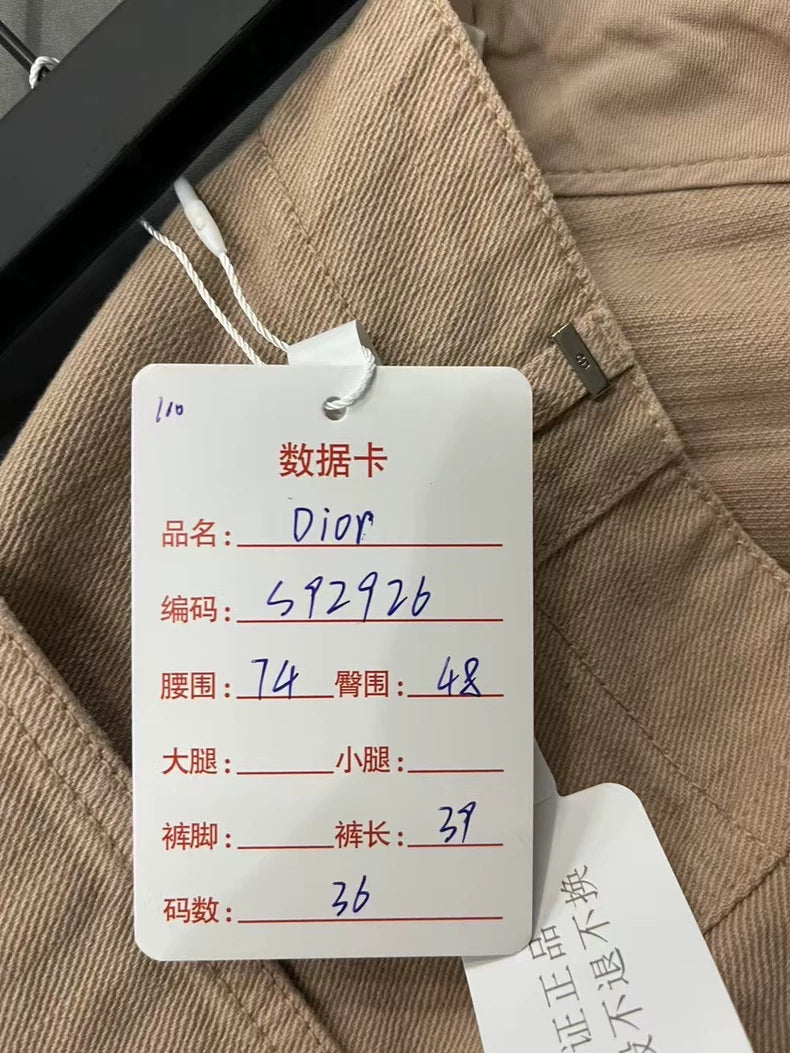 110
数据卡
品名: Dior
编码: S92926
腰围: 74 臀围: 48
大腿: 小腿:
裤脚: 裤长: 39
码数: 36
证正品
不退不换